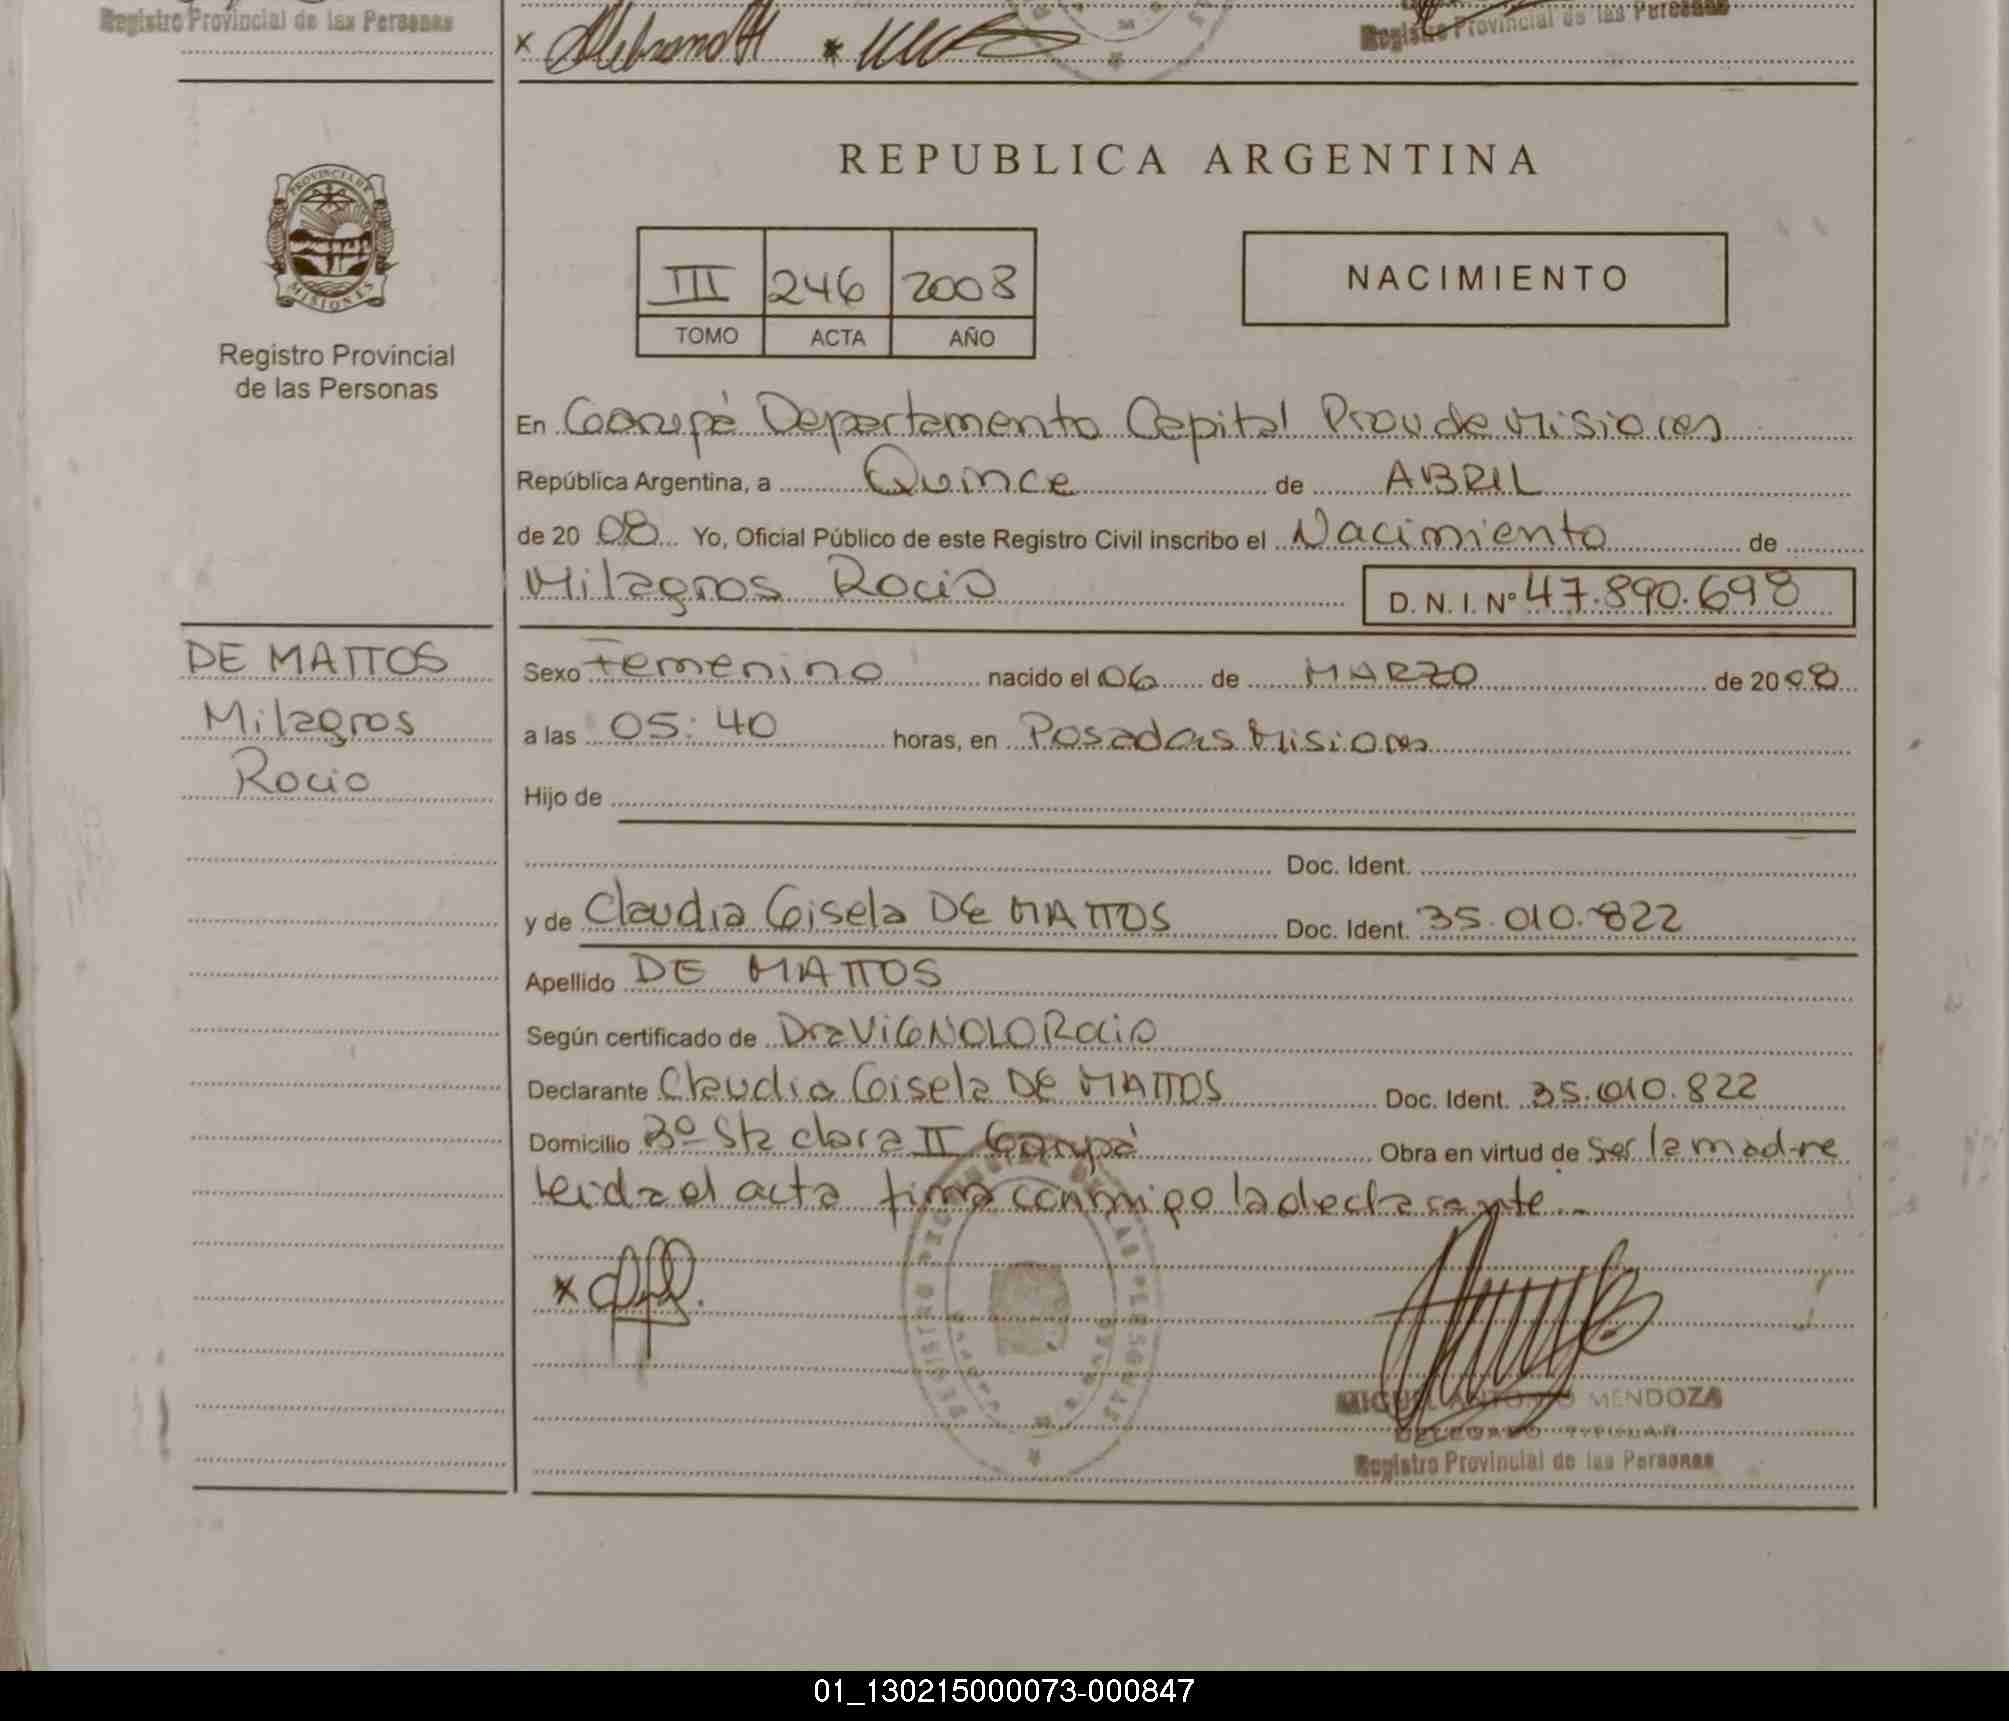 Registro Provincial de las Personas
Registro Provincial de las Personas
PROVINCIA DE
MISIONES
Registro Provincial
de las Personas
REPUBLICA ARGENTINA
III 246 2008
TOMO ACTA AÑO
NACIMIENTO
En Garupá Departamento Capital Prov de Misiones
República Argentina, a Quince de ABRIL
de 20 08 Yo, Oficial Público de este Registro Civil inscribo el Nacimiento de
Milagros Rocio D. N. I. Nº 47.890.698
DE MATTOS
Milagros
Rocio
Sexo Femenino nacido el 06 de MARZO de 20 08
a las 05:40 horas, en Posadas Misiones
Hijo de
Doc. Ident.
y de Claudia Gisela DE MATTOS Doc. Ident. 35.010.822
Apellido DE MATTOS
Según certificado de Dra VIGNOLO Rocio
Declarante Claudia Gisela DE MATTOS Doc. Ident. 35.010.822
Domicilio Bº Sta clara II Garupá Obra en virtud de ser la madre
leida el acta firma conmigo la declarante.-
MIGUEL ANTONIO MENDOZA
DELEGADO TITULAR
Registro Provincial de las Personas
01_130215000073-000847